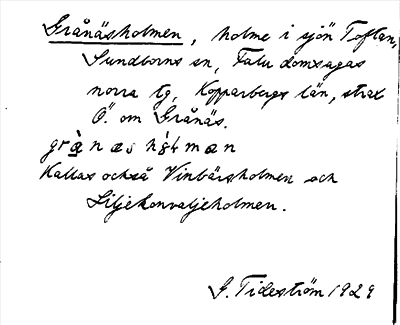 Grånäsholmen, holme i sjön Toftan,
Sundborns sn, Falu domsagas
norra tg, Kopparbergs län, strax
Ö. om Grånäs.
grånæs
Kallas också Vinbärsholmen och
Liljekonvaljeholmen.
G. Tideström 1929